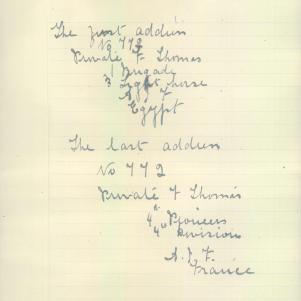 The first address
No 772
Private F Thomas
1 Brigade
3 Light horse
A I F
Egypt
The last address
No 772
Private F Thomas
4th Pioneers
4th Division
A. I. F.
France